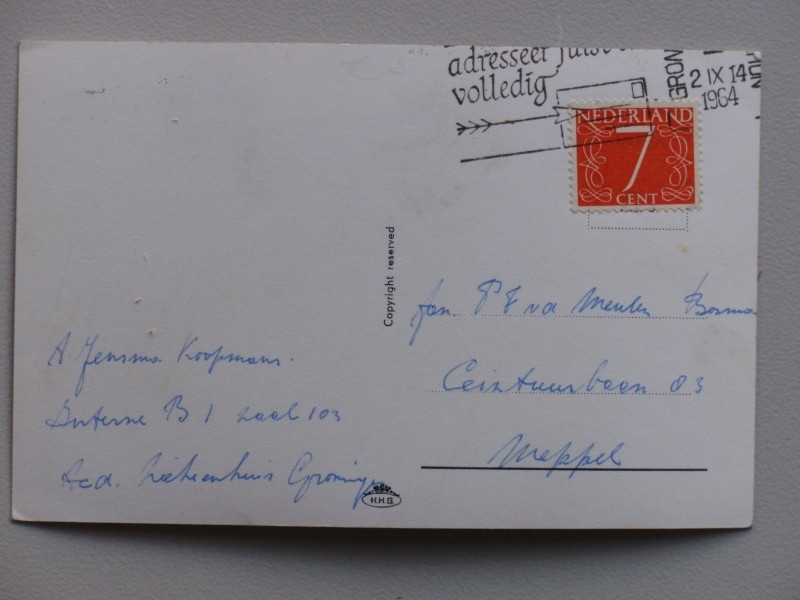 adresseer juist
volledig
GRON
2 IX 14
1964
NEDERLAND
7
CENT
Copyright reserved
fam. P F v d Meulen Bosma
Ceintuurbaan 83
Meppel
A Jensma Koopmans.
Interne B 1 zaal 103
Acd. Ziekenhuis Groningen
H.H.G.